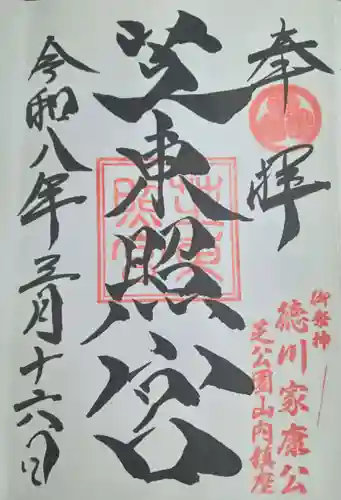 奉拝
御祭神
徳川家康公
芝公園山内鎮座
芝東照宮
芝東照宮
令和八年三月十六日